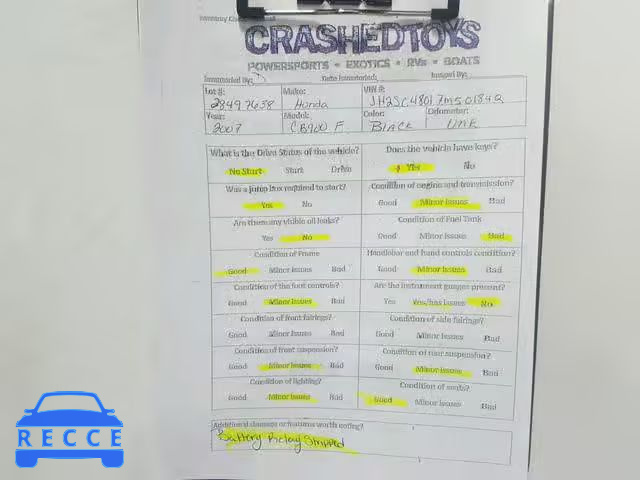 CRASHEDTOYS
POWERSPORTS • EXOTICS • RVs • BOATS
Inventoried By: Date Inventoried: Keyed By:
Lot #: Make: VIN #:
28497638 Honda JH2SC48017M501842
Year: Model: Color: Odometer:
2007 CB900 F Black UNK
What is the Drive Status of the vehicle? Does the vehicle have keys?
No Start Start Drive 1 Yes No
Was a jump box required to start? Condition of engine and transmission?
Yes No Good Minor Issues Bad
Are there any visible oil leaks? Condition of Fuel Tank
Yes No Good Minor Issues Bad
Condition of Frame Handlebar and hand controls condition?
Good Minor Issues Bad Good Minor Issues Bad
Condition of the foot controls? Are the instrument gauges present?
Good Minor Issues Bad Yes Yes/has Issues No
Condition of front fairings? Condition of side fairings?
Good Minor Issues Bad Good Minor Issues Bad
Condition of front suspension? Condition of rear suspension?
Good Minor Issues Bad Good Minor Issues Bad
Condition of lighting? Condition of seats?
Good Minor Issues Bad Good Minor Issues Bad
Additional damage or features worth noting?
Battery Relay Stripped
RECCE